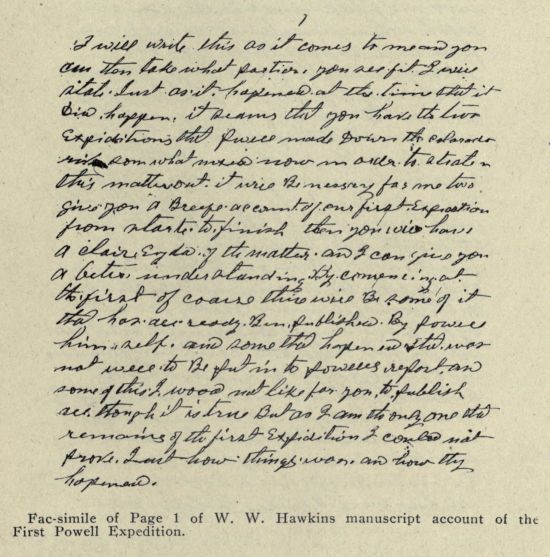 1
I will write this as it comes to me and you
can then take what portion you see fit I will
state Just as it hapened at the time that it
Did happen. it seams that you have the two
Expiditions that Powell made Down the colorado
river som what mixed now in order to straten
this matter out. it will Be nessery for me two
give you a Breefe account of our first Expedition
from starte to finish then you will have
a clair Eydia of the matter and I can give you
a beter understanding By comencing at
the first of coarse thire will Be some of it
that has all ready Ben published By Powell
him self. and some that hopened that was
not well to Be put in to Powells report. and
some of this I wood not like for you to publish
all though it is true But as I am the only one that
remains of the first Expidition I could not
prove Just how things was. and how they
hapened.
Fac-simile of Page 1 of W. W. Hawkins manuscript account of the
First Powell Expedition.